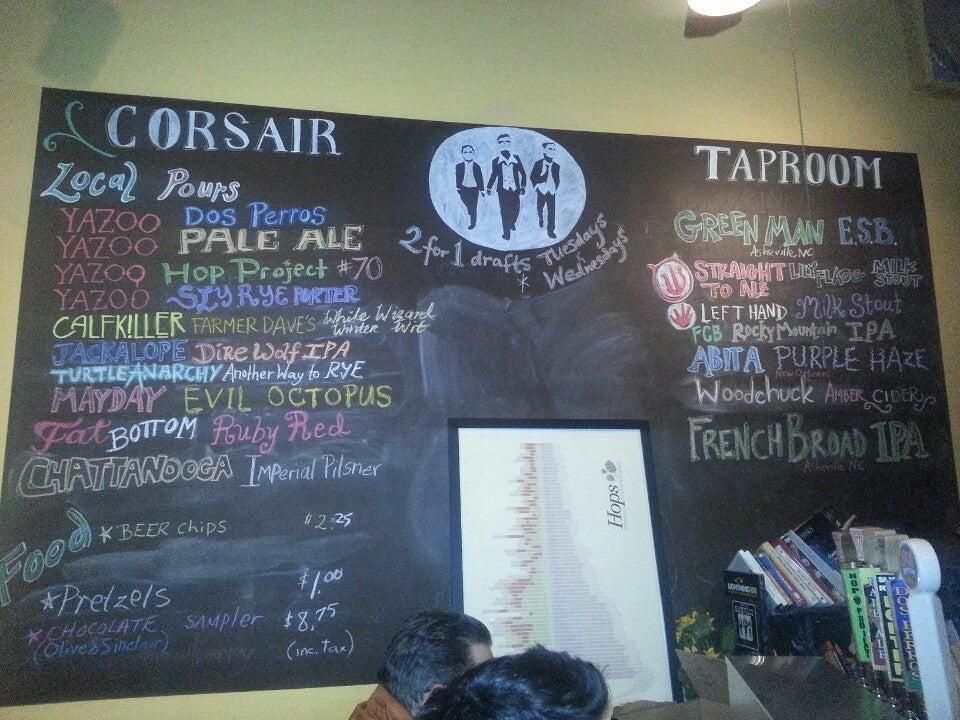 CORSAIR
Local Pours
YAZOO DOS Perros
YAZOO PALE ALE
YAZOO HOP Project #70
YAZOO SLY RYE PORTER
CALFKILLER FARMER DAVE'S White Wizard Winter Wit
JACKALOPE DIRE WOLF IPA
TURTLE ANARCHY Another Way to RYE
MAYDAY EVIL OCTOPUS
Fat BOTTOM Ruby Red
CHATTANOOGA IMPerial Pilsner
Food
* BEER chips $2.25
* Pretzels $1.00
* CHOCOLATE SAMPLER $8.75
(Olive & Sinclair) (inc. tax)
2 for 1 drafts Tuesdays
* Wednesdays
Hops
TAPROOM
GREEN MAN E.S.B.
Asheville, NC
STRAIGHT TO ALE LILY FLAGG MILK STOUT
LEFT HAND Milk Stout
FCB Rocky Mountain IPA
ABITA PURPLE HAZE
New Orleans
Woodchuck AMBER CIDER
FRENCH BROAD IPA
Asheville NC
LIGHTNING 100
HOP PROJECT
PALE ALE
DOS PERROS